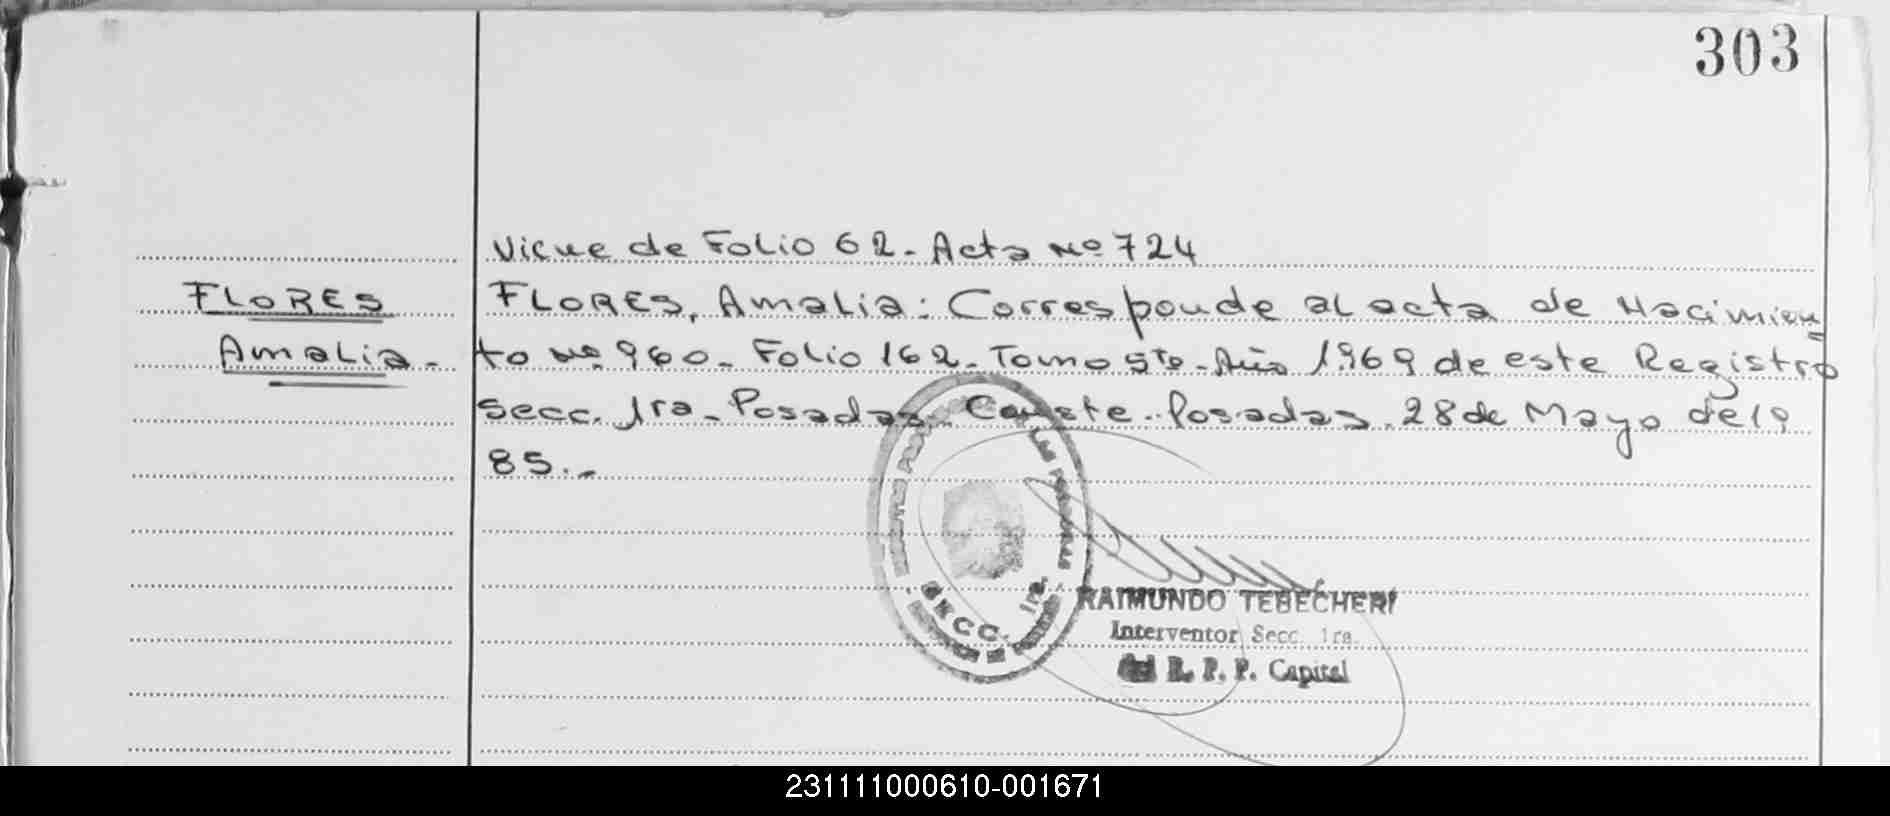 303
Viene de Folio 62. Acta Nº 724
FLORES
Amalia.
FLORES, Amalia: Corresponde al acta de Nacimien
to Nº 960. Folio 162. Tomo 5to. Año 1969 de este Registro
Secc. 1ra. Posadas. Conste. Posadas, 28 de Mayo de 19
85.-
LAS PERSONAS
SECC. 1ra.
RAIMUNDO TEBECHERI
Interventor Secc. 1ra.
del R. P. P. Capital
231111000610-001671